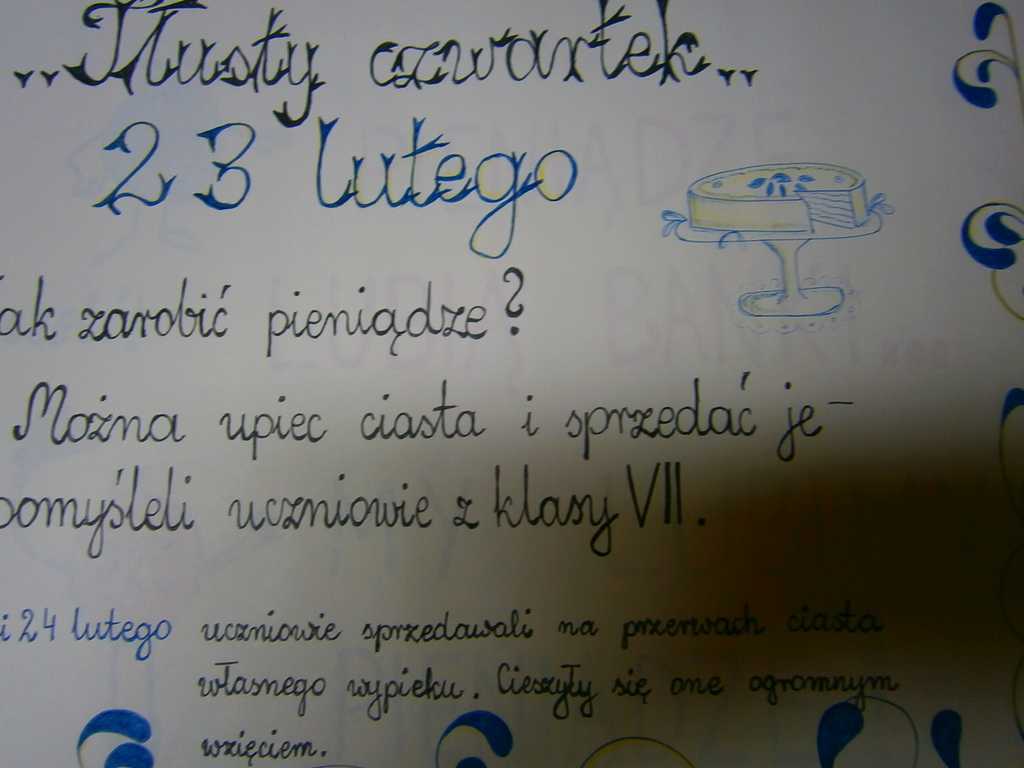 „Tłusty czwartek„
23 lutego
Jak zarobić pieniądze?
Można upiec ciasta i sprzedać je-
pomyśleli uczniowie z klasy VII.
i 24 lutego uczniowie sprzedawali na przerwach ciasta
własnego wypieku. Cieszyły się one ogromnym
wzięciem.